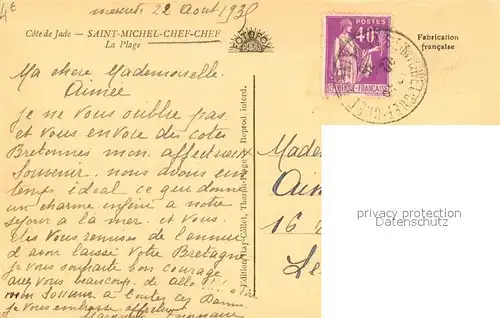 4€
mercredi 22 Aout 193
Côte de Jade - SAINT-MICHEL-CHEF-CHEF
La Plage
Fabrication
française
POSTES
40c
Ma chere Mademoiselle
Aimée
Je ne vous oublie pas
et vous envoie des cotes
Bretonnes mon affectueux
Souvenir. nous avons un
temps ideal ce qui donne
un charme enjoué a notre
sejour a la mer. et vous.
Etes vous remises de l'ennui
d'avoir laissé votre Bretagne
je vous souhaite bon courage
avez vous beaucoup de
mon Souvenir a toutes ces Dames
je vous embrasse affectueusement
Edition Ray-Gillet, Tharon-Plage - Reprod. interd.
Made
Aim
16
Le
privacy protection
Datenschutz